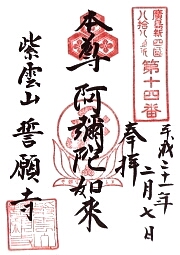 廣島新四國
八拾八ヶ所
第十四番
奉拝
平成二十一年
二月七日
本尊 阿彌陀如來
紫雲山 誓願寺